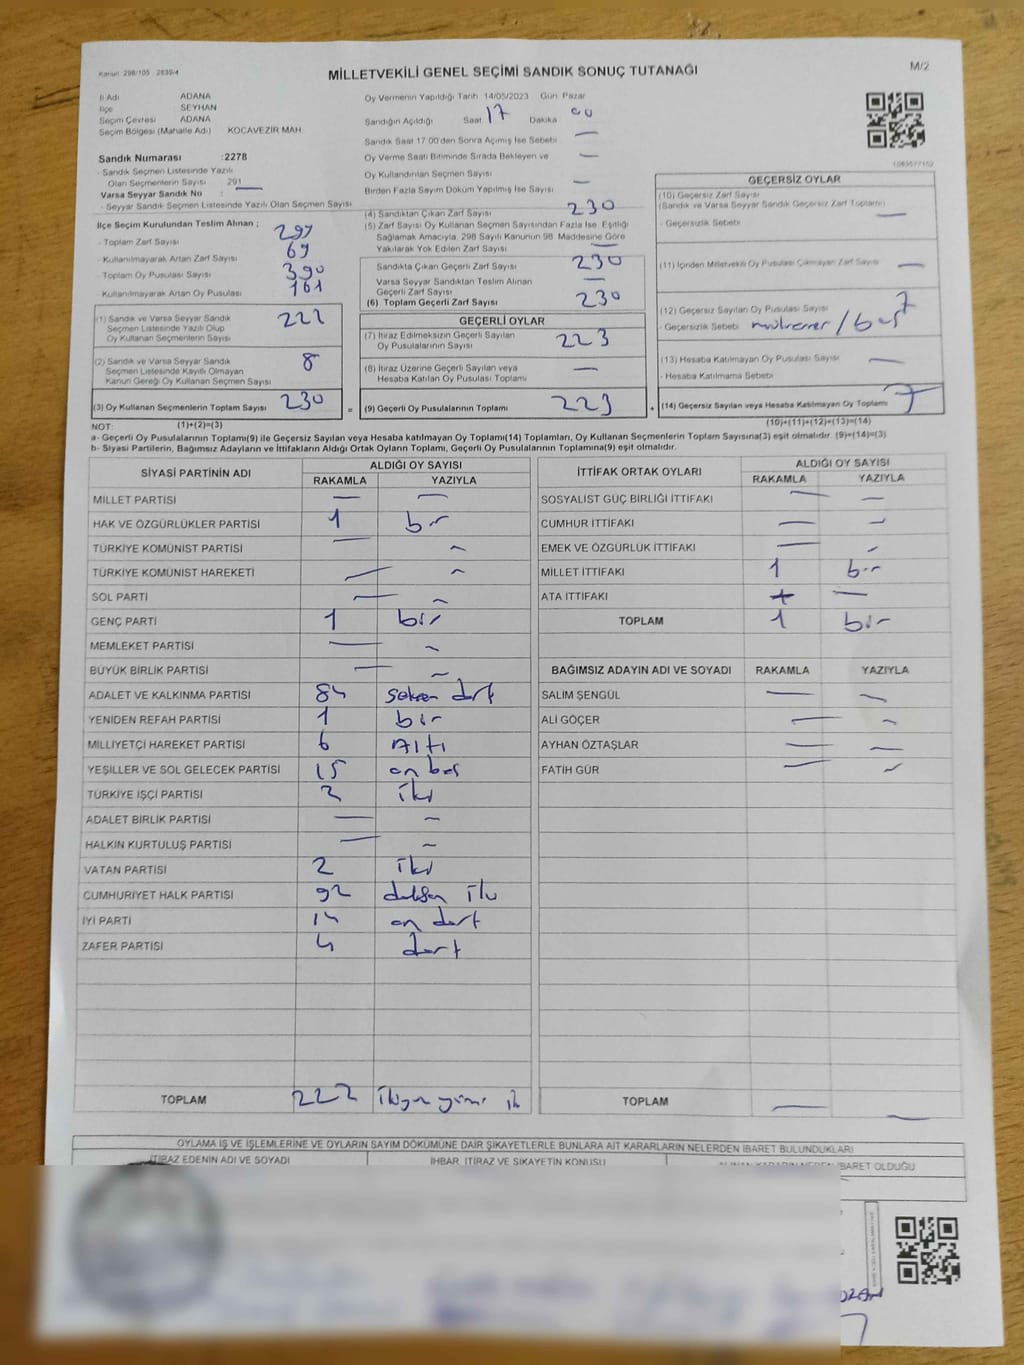 Kanun: 298/105 2839/4
MİLLETVEKİLİ GENEL SEÇİMİ SANDIK SONUÇ TUTANAĞI
M/2
İl Adı ADANA
İlçe SEYHAN
Seçim Çevresi ADANA
Seçim Bölgesi (Mahalle Adı) KOCAVEZİR MAH.
Sandık Numarası :2278
- Sandık Seçmen Listesinde Yazılı
Olan Seçmenlerin Sayısı 291
Varsa Seyyar Sandık No :
- Seyyar Sandık Seçmen Listesinde Yazılı Olan Seçmen Sayısı
Oy Vermenin Yapıldığı Tarih 14/05/2023 Gün Pazar
Sandığın Açıldığı Saat 17 Dakika 00
Sandık Saat 17:00'den Sonra Açılmış İse Sebebi —
Oy Verme Saati Bitiminde Sırada Bekleyen ve —
Oy Kullandırılan Seçmen Sayısı
Birden Fazla Sayım Döküm Yapılmış İse Sayısı —
İlçe Seçim Kurulundan Teslim Alınan :
- Toplam Zarf Sayısı 299
- Kullanılmayarak Artan Zarf Sayısı 69
- Toplam Oy Pusulası Sayısı 390
- Kullanılmayarak Artan Oy Pusulası 161
(1) Sandık ve Varsa Seyyar Sandık
Seçmen Listesinde Yazılı Olup
Oy Kullanan Seçmenlerin Sayısı 222
(2) Sandık ve Varsa Seyyar Sandık
Seçmen Listesinde Kayıtlı Olmayan
Kanun Gereği Oy Kullanan Seçmen Sayısı 8
(3) Oy Kullanan Seçmenlerin Toplam Sayısı 230
(4) Sandıktan Çıkan Zarf Sayısı 230
(5) Zarf Sayısı Oy Kullanan Seçmen Sayısından Fazla İse, Eşitliği
Sağlamak Amacıyla, 298 Sayılı Kanunun 98. Maddesine Göre
Yakılarak Yok Edilen Zarf Sayısı —
Sandıkta Çıkan Geçerli Zarf Sayısı 230
Varsa Seyyar Sandıktan Teslim Alınan
Geçerli Zarf Sayısı —
(6) Toplam Geçerli Zarf Sayısı 230
GEÇERLİ OYLAR
(7) İtiraz Edilmeksizin Geçerli Sayılan
Oy Pusulalarının Sayısı 223
(8) İtiraz Üzerine Geçerli Sayılan veya
Hesaba Katılan Oy Pusulası Toplamı —
= (9) Geçerli Oy Pusulalarının Toplamı 223 +
1083577152
GEÇERSİZ OYLAR
(10) Geçersiz Zarf Sayısı
(Sandık ve Varsa Seyyar Sandık Geçersiz Zarf Toplamı) —
- Geçersizlik Sebebi
(11) İçinden Milletvekili Oy Pusulası Çıkmayan Zarf Sayısı —
(12) Geçersiz Sayılan Oy Pusulası Sayısı 7
- Geçersizlik Sebebi
(13) Hesaba Katılmayan Oy Pusulası Sayısı —
- Hesaba Katılmama Sebebi
(14) Geçersiz Sayılan veya Hesaba Katılmayan Oy Toplamı 7
NOT: (1)+(2)=(3) (10)+(11)+(12)+(13)=(14)
a- Geçerli Oy Pusulalarının Toplamı(9) ile Geçersiz Sayılan veya Hesaba katılmayan Oy Toplamı(14) Toplamları, Oy Kullanan Seçmenlerin Toplam Sayısına(3) eşit olmalıdır. (9)+(14)=(3)
b- Siyasi Partilerin, Bağımsız Adayların ve İttifakların Aldığı Ortak Oyların Toplamı, Geçerli Oy Pusulalarının Toplamına(9) eşit olmalıdır.
SİYASİ PARTİNİN ADI ALDIĞI OY SAYISI
RAKAMLA YAZIYLA
MİLLET PARTİSİ — —
HAK VE ÖZGÜRLÜKLER PARTİSİ 1 bir
TÜRKİYE KOMÜNİST PARTİSİ — —
TÜRKİYE KOMÜNİST HAREKETİ — —
SOL PARTİ — —
GENÇ PARTİ 1 bir
MEMLEKET PARTİSİ — —
BÜYÜK BİRLİK PARTİSİ — —
ADALET VE KALKINMA PARTİSİ 84 seksen dört
YENİDEN REFAH PARTİSİ 1 bir
MİLLİYETÇİ HAREKET PARTİSİ 6 Altı
YEŞİLLER VE SOL GELECEK PARTİSİ 15 on beş
TÜRKİYE İŞÇİ PARTİSİ 2 iki
ADALET BİRLİK PARTİSİ — —
HALKIN KURTULUŞ PARTİSİ — —
VATAN PARTİSİ 2 iki
CUMHURİYET HALK PARTİSİ 92 doksan iki
İYİ PARTİ 14 on dört
ZAFER PARTİSİ 4 dört
TOPLAM 222 ikiyüz yirmi iki
İTTİFAK ORTAK OYLARI ALDIĞI OY SAYISI
RAKAMLA YAZIYLA
SOSYALİST GÜÇ BİRLİĞİ İTTİFAKI — —
CUMHUR İTTİFAKI — —
EMEK VE ÖZGÜRLÜK İTTİFAKI — —
MİLLET İTTİFAKI 1 bir
ATA İTTİFAKI —
TOPLAM 1 bir
BAĞIMSIZ ADAYIN ADI VE SOYADI RAKAMLA YAZIYLA
SALİM ŞENGÜL — —
ALİ GÖÇER — —
AYHAN ÖZTAŞLAR — —
FATİH GÜR — —
TOPLAM — —
OYLAMA İŞ VE İŞLEMLERİNE VE OYLARIN SAYIM DÖKÜMÜNE DAİR ŞİKAYETLERLE BUNLARA AİT KARARLARIN NELERDEN İBARET BULUNDUKLARI
İTİRAZ EDENİN ADI VE SOYADI İHBAR, İTİRAZ VE ŞİKAYETİN KONUSU ALINAN KARARIN NEDEN İBARET OLDUĞU